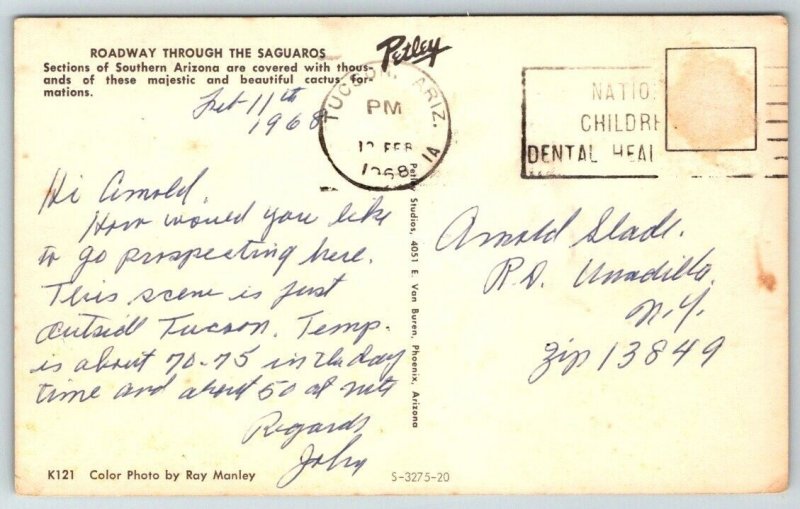 ROADWAY THROUGH THE SAGUAROS
Sections of Southern Arizona are covered with thous-
ands of these majestic and beautiful cactus for-
mations.
Petley
TUCSON, ARIZ.
PM
12 FEB
1968
1A
NATIO
CHILDR
DENTAL HEAL
Feb 11th
1968
Hi Arnold,
How would you like
to go prospecting here.
This scene is just
outside Tucson. Temp.
is about 70-75 in the day
time and about 50 at nite
Regards
John
Petley Studios, 4051 E. Van Buren, Phoenix, Arizona
Arnold Slade.
R.D. Unadilla,
N.Y.
Zip 13849
K121 Color Photo by Ray Manley
S-3275-20